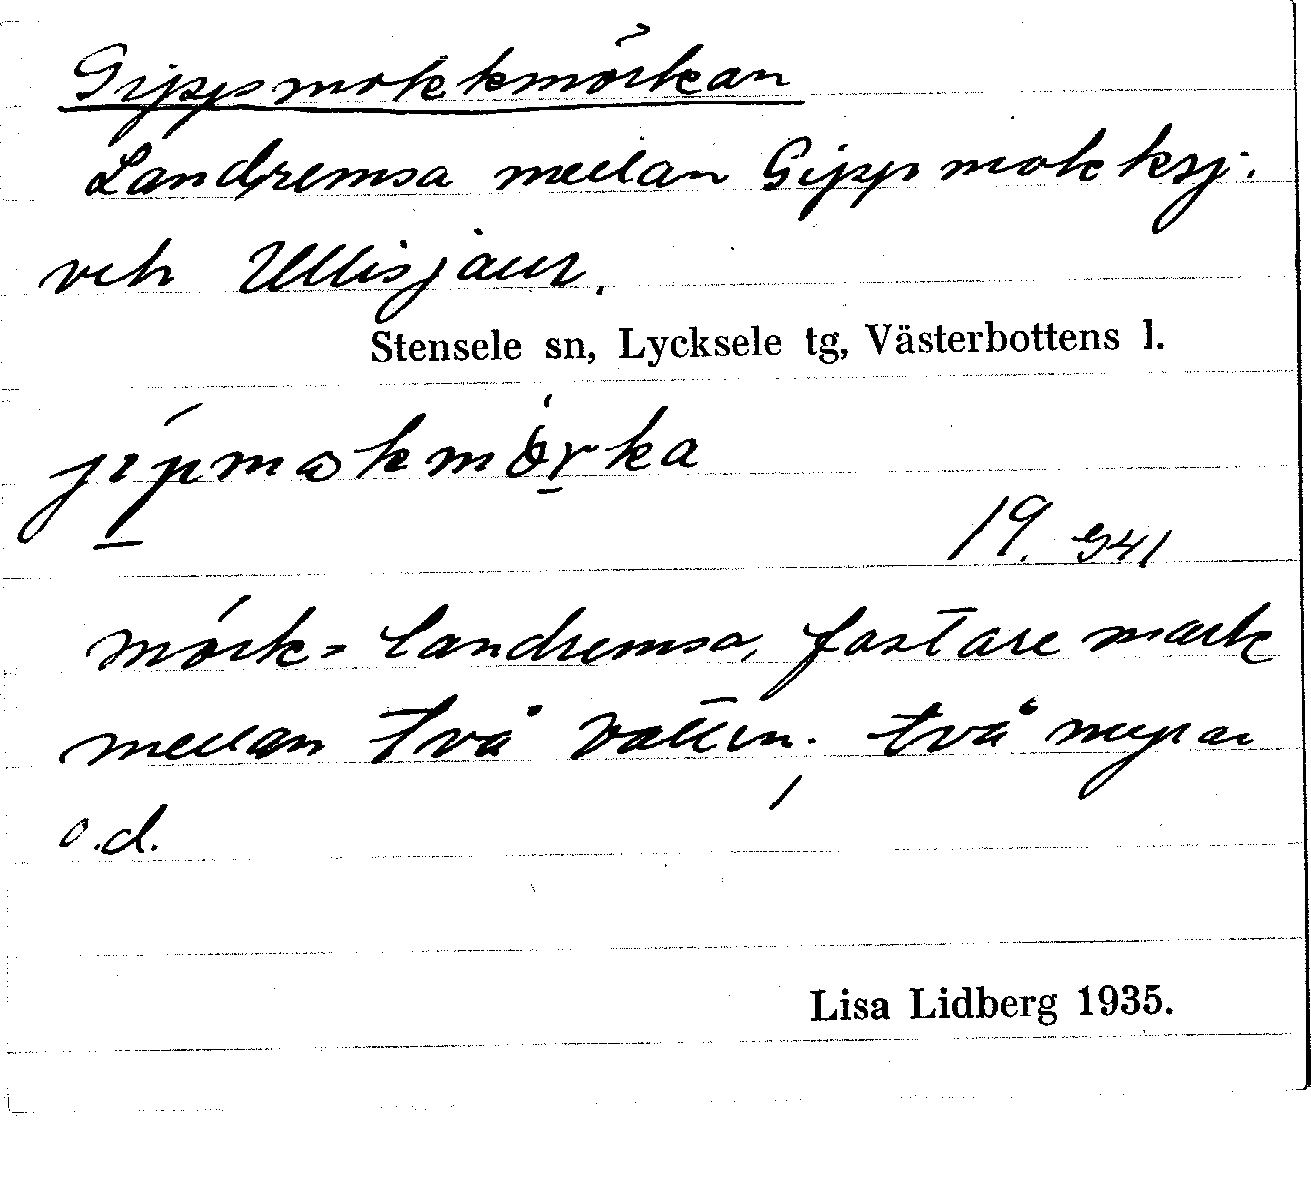 Gippmokkmörkan
Landremsa mellan Gippmokksj.
och Ullisjaur.
Stensele sn, Lycksele tg, Västerbottens l.
jipmokmörka
19. 941
mörk = landremsa, fastare mark
mellan två vatten, två myrar
o.d.
Lisa Lidberg 1935.